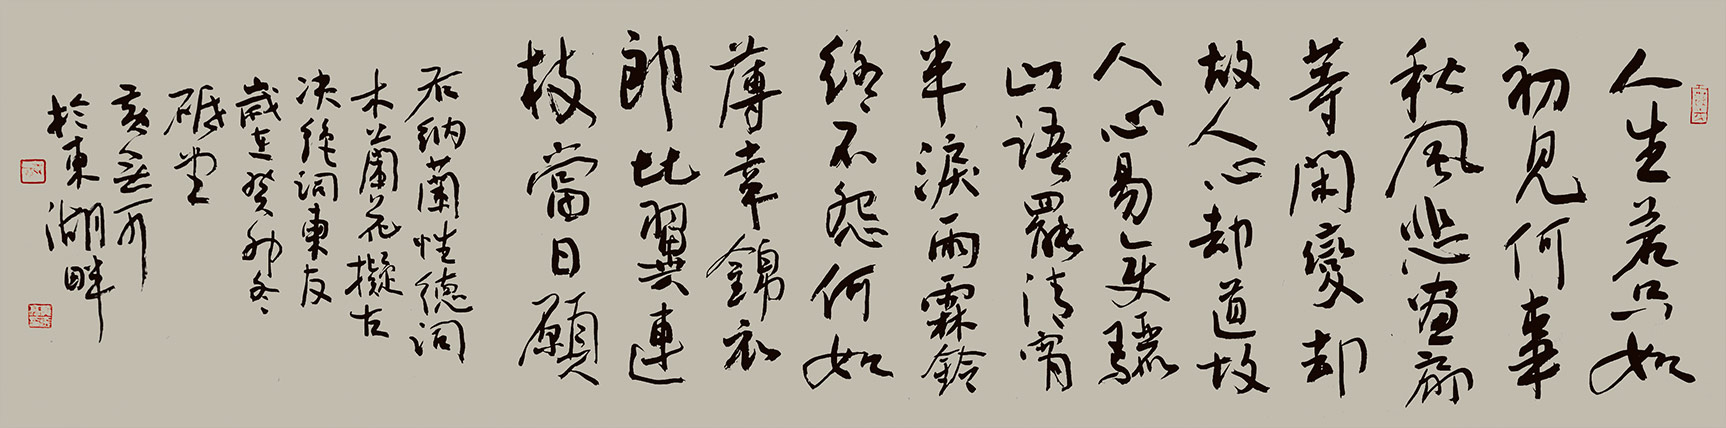 人生若只如
初見何事
秋风悲畫扇
等閑變却
故人心却道故
人心易变驪
山語罷清宵
半淚雨霖鈴
終不怨何如
薄幸錦衣
郎比翼連
枝當日願
右納蘭性德詞
木蘭花擬古
决絶詞柬友
歲在癸卯冬
砥堂
於東湖畔